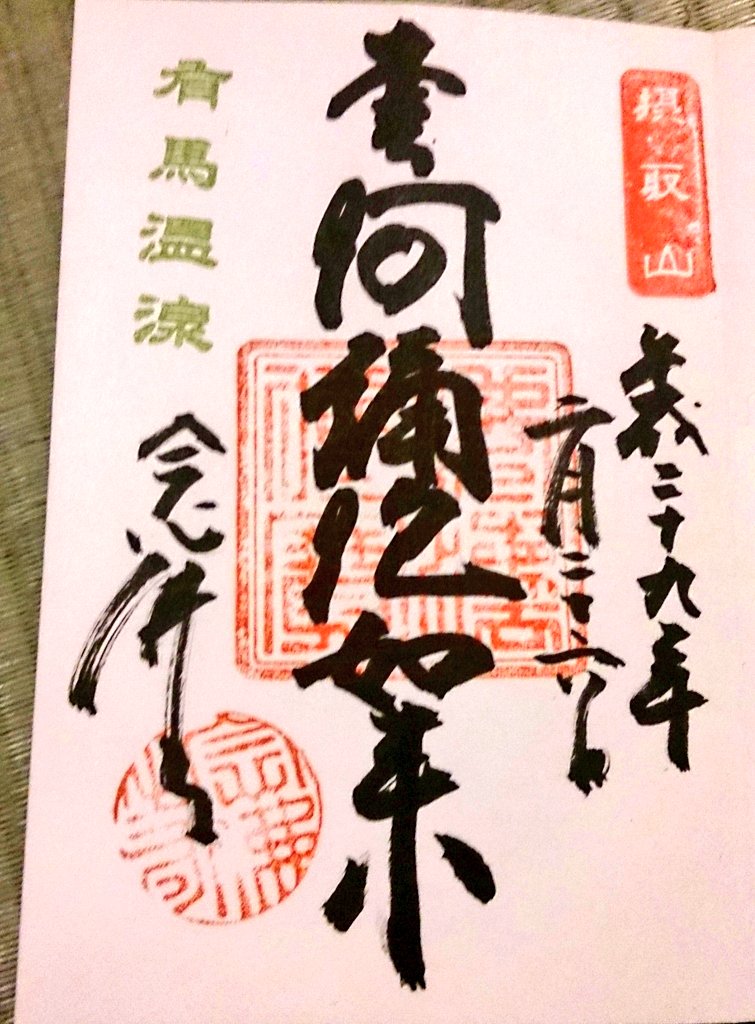 摂取山
平成二十九年
二月二十六日
阿彌陀如来
有馬温泉
念佛寺